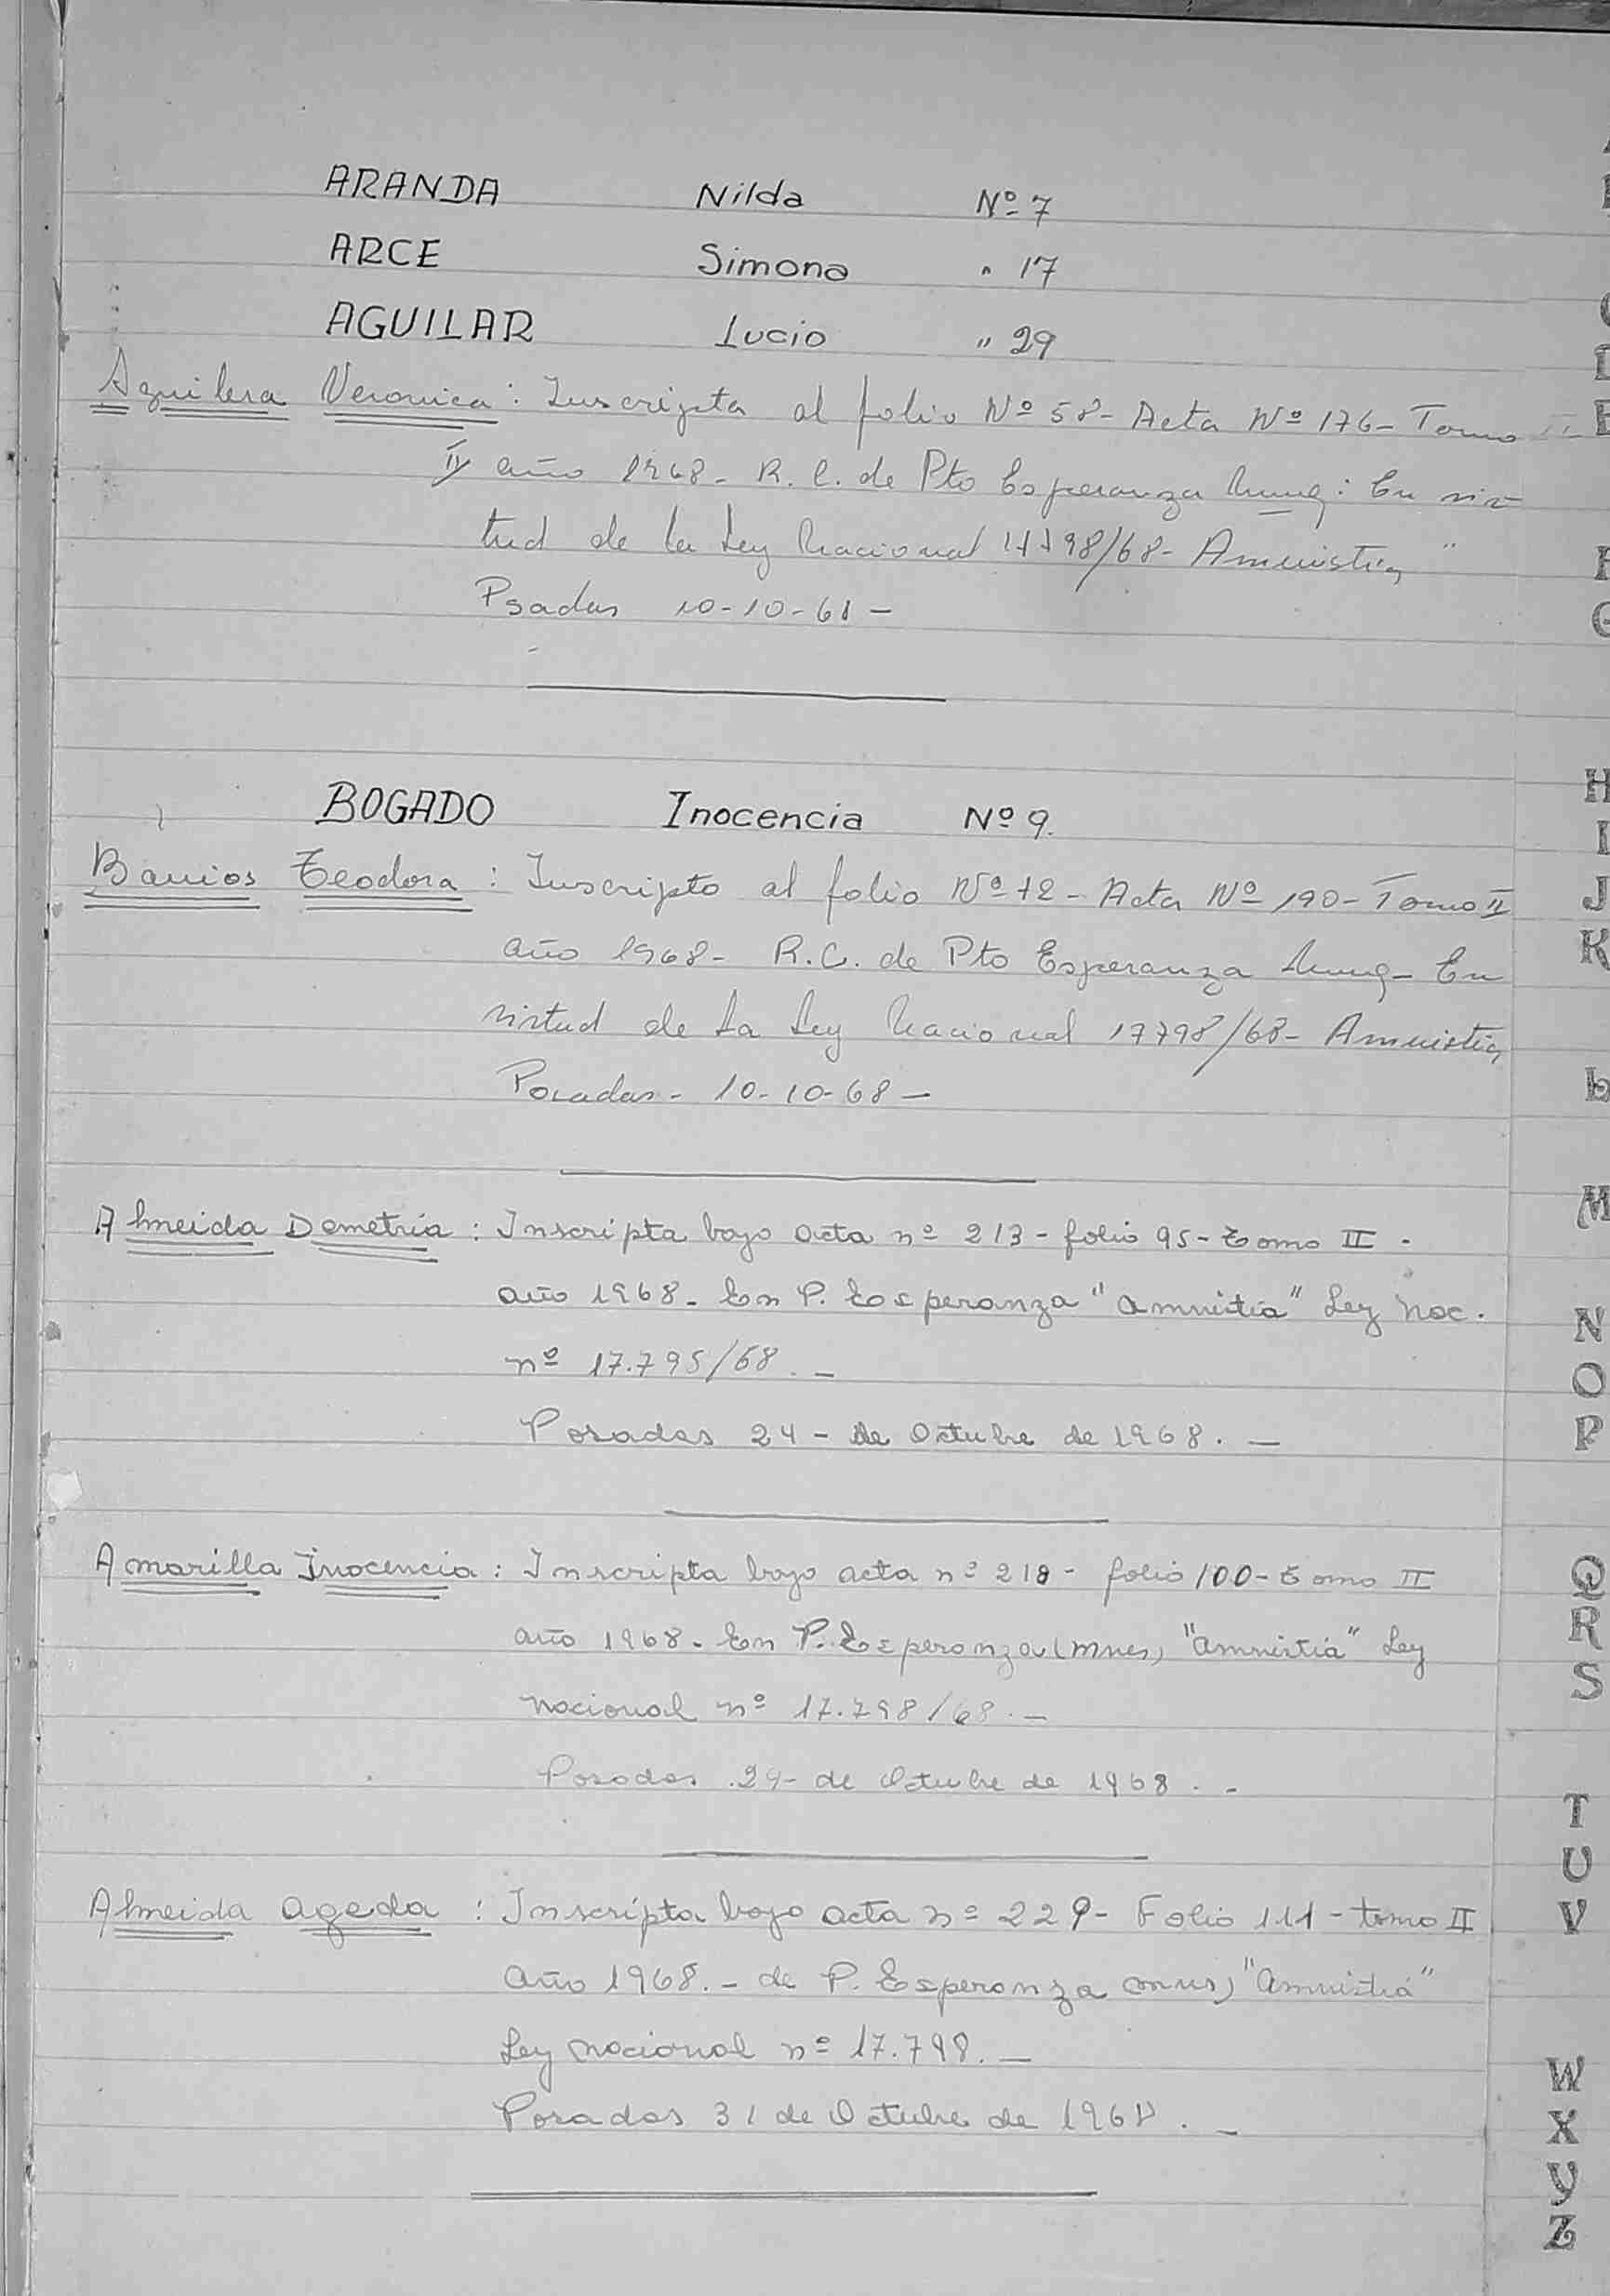 ARANDA Nilda Nº 7
ARCE Simona " 17
AGUILAR Lucio " 29
Aguilera Veronica : Inscripta al folio Nº 58- Acta Nº 176- Tomo
II año 1968- R.C. de Pto Esperanza : En vir-
tud de la Ley Nacional 17798/68- Amnistia"
Psadas 10-10-68 -
BOGADO Inocencia Nº 9.
Barrios Teodora : Inscripto al folio Nº 72 - Acta Nº 190- Tomo II
año 1968- R.C. de Pto Esperanza En
virtud de La Ley Nacional 17798/68- Amnistia
Posadas- 10-10-68 -
Almeida Demetria : Inscripta bajo acta nº 213 - folio 95- Tomo II -
año 1968- En P. Esperanza "amnistia" Ley Nac.
nº 17.795/68. -
Posadas 24 - de Octubre de 1968. -
Amarilla Inocencia : Inscripta bajo acta nº 218 - folio 100- Tomo II
año 1968- En P. Esperanza (mnes) "amnistia" Ley
nacional nº 17.798/68. -
Posadas 24- de Octubre de 1968. -
Almeida Ageda : Inscripta bajo acta nº 229- Folio 111 - tomo II
año 1968. - de P. Esperanza "amnistia"
Ley nacional nº 17.798. -
Posadas 31 de Octubre de 1968. -
E
H
I
J
K
L
M
N
O
P
Q
R
S
T
U
V
W
X
Y
Z